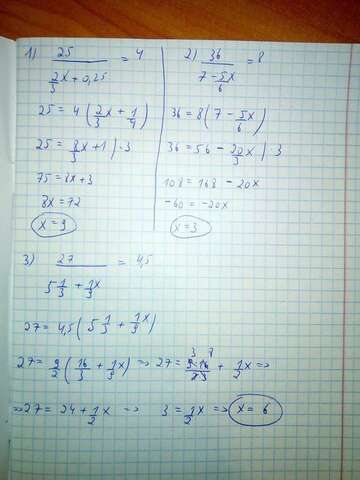 1) 25 / (2/3x + 0,25) = 4
25 = 4(2/3x + 1/4)
25 = 8/3x + 1 | ·3
75 = 8x + 3
8x = 72
x = 9
2) 36 / (7 - 5/6x) = 8
36 = 8(7 - 5/6x)
36 = 56 - 20/3x | ·3
108 = 168 - 20x
-60 = -20x
x = 3
3) 27 / (5 1/3 + 1/3x) = 4,5
27 = 4,5(5 1/3 + 1/3x)
27 = 9/2(16/3 + 1/3x) => 27 = 9·16/2·3 3 8 + 1/2x =>
=> 27 = 24 + 1/2x => 3 = 1/2x => x = 6